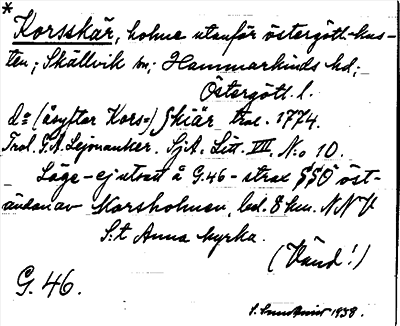 *
Korsskär, holme utanför östergött-kus-
ten; Skällvik sn; Hammarkinds hd;
Östergötl. l.
do (åsyftar Kors=) Skiär trol. 1774.
Trol. G.A. Lejonanker. Sj.A. Litt. VIII. No 10.
Läge - ej utsatt å G.46 - strax SSO öst-
ändan av Korsholmen, bel. 8 km. NNV
S:t Anna kyrka.
(Vänd!)
G. 46.
1938.